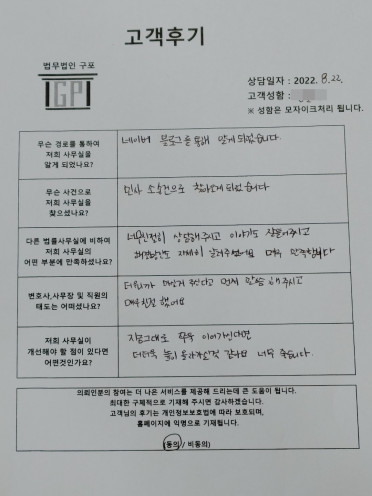 고객후기
법무법인 구포
GP
상담일자 : 2022. 8. 22.
고객성함 :
※ 성함은 모자이크처리 됩니다.
무슨 경로를 통하여
저희 사무실을
알게 되었나요?
네이버 블로그를 통해 알게 되었습니다.
무슨 사건으로
저희 사무실을
찾으셨나요?
민사 소송건으로 찾아오게 되었습니다
다른 법률사무실에 비하여
저희 사무실의
어떤 부분에 만족하셨나요?
너무친절히 상담해주시고 이야기도 잘들어주시고
해결방안도 자세히 알려주셔서 매우 만족합니다
변호사,사무장 및 직원의
태도는 어떠셨나요?
먼저 말씀 해주시고
매우친절 했어요
저희 사무실이
개선해야 할 점이 있다면
어떤것인가요?
지금그대로 쭉쭉 이어나간다면
더더욱 높이 올라가실것 같아요 너무 좋습니다.
의뢰인분의 참여는 더 나은 서비스를 제공해 드리는데 큰 도움이 됩니다.
최대한 구체적으로 기재해 주시면 감사하겠습니다.
고객님의 후기는 개인정보보호법에 따라 보호되며,
홈페이지에 익명으로 기재됩니다.
(동의 / 비동의)